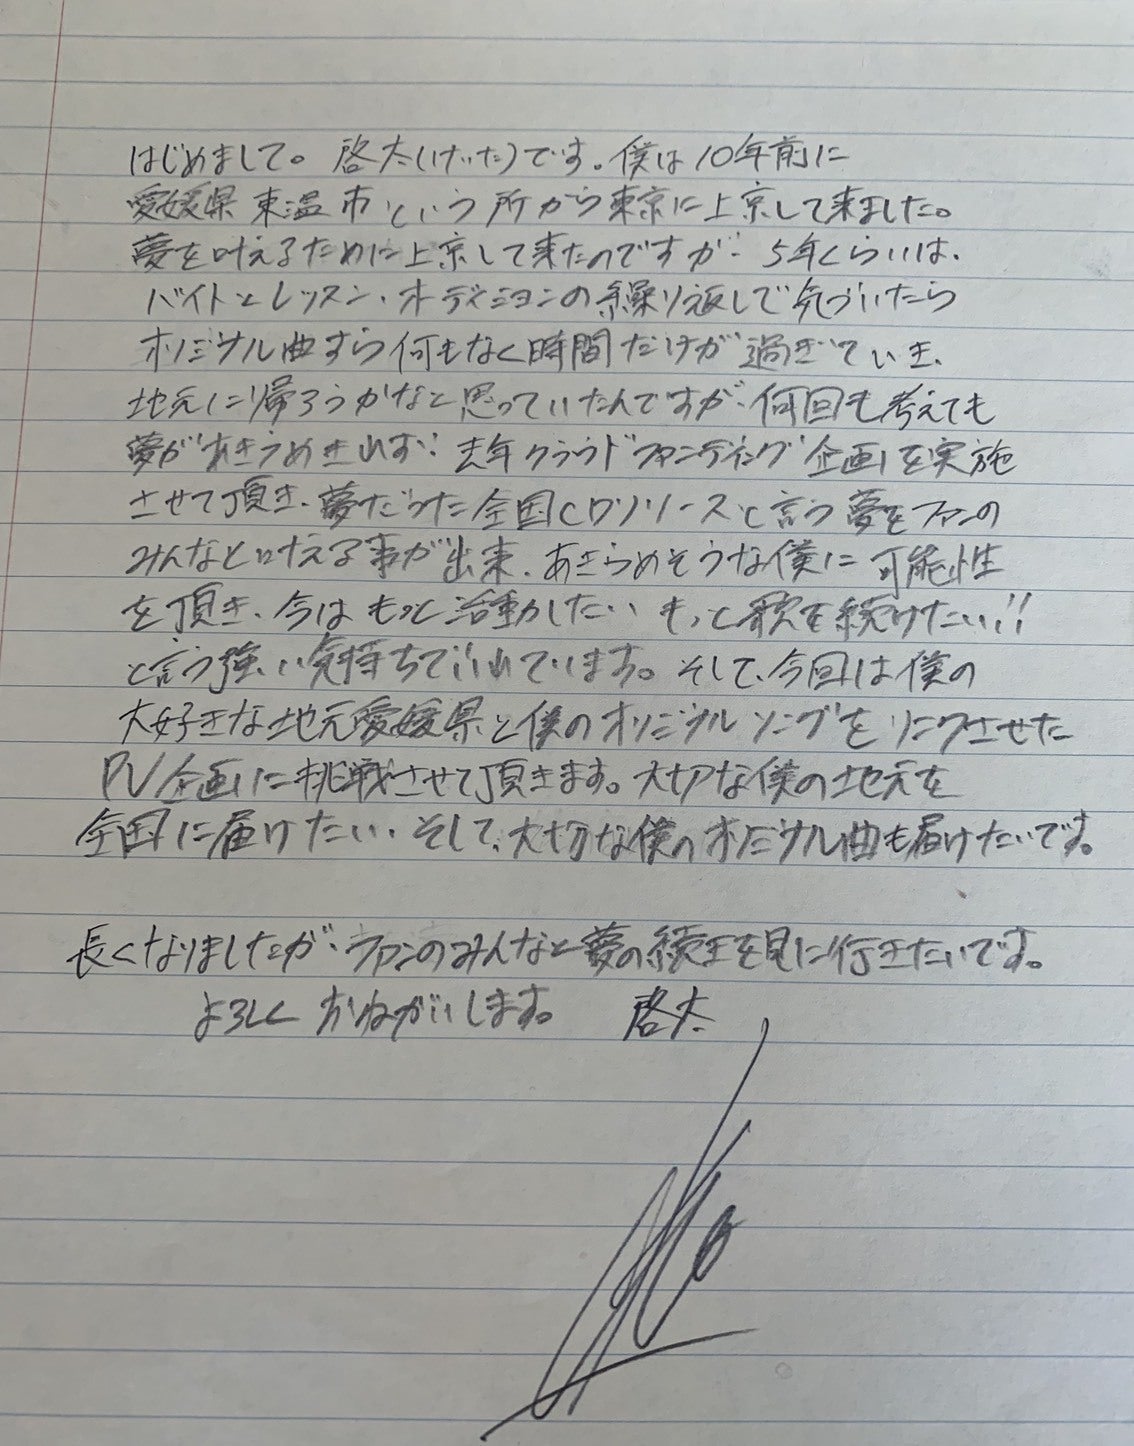 はじめまして。啓太(けいた)です。僕は10年前に
愛媛県東温市という所から東京に上京して来ました。
夢を叶えるために上京して来たのですが、5年くらいは、
バイトとレッスン、オーディションの繰り返しで気づいたら
オリジナル曲すら何もなく時間だけが過ぎていき、
地元に帰ろうかなと思っていたんですが、何回も考えても
夢があきらめきれず、去年クラウドファンディング企画を実施
させて頂き、夢だった全国CDリリースと言う夢をファンの
みんなと叶える事が出来、あきらめそうな僕に可能性
を頂き、今はもっと活動したいもっと歌を続けたい!!
と言う強い気持ちで いています。そして、今回は僕の
大好きな地元愛媛県と僕のオリジナルソングをリンクさせた
PV企画に挑戦させて頂きます。大切な僕の地元を
全国に届けたい、そして、大切な僕のオリジナル曲も届けたいです。
長くなりましたが、ファンのみんなと夢の続きを見に行きたいです。
よろしくおねがいします。 啓太